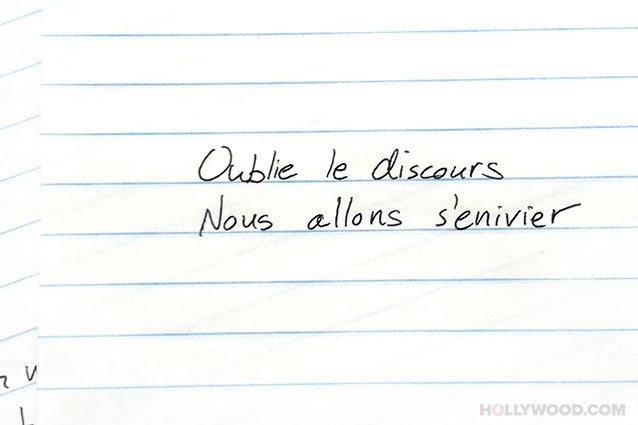 Oublie le discours
Nous allons s'enivier
HOLLYWOOD.COM